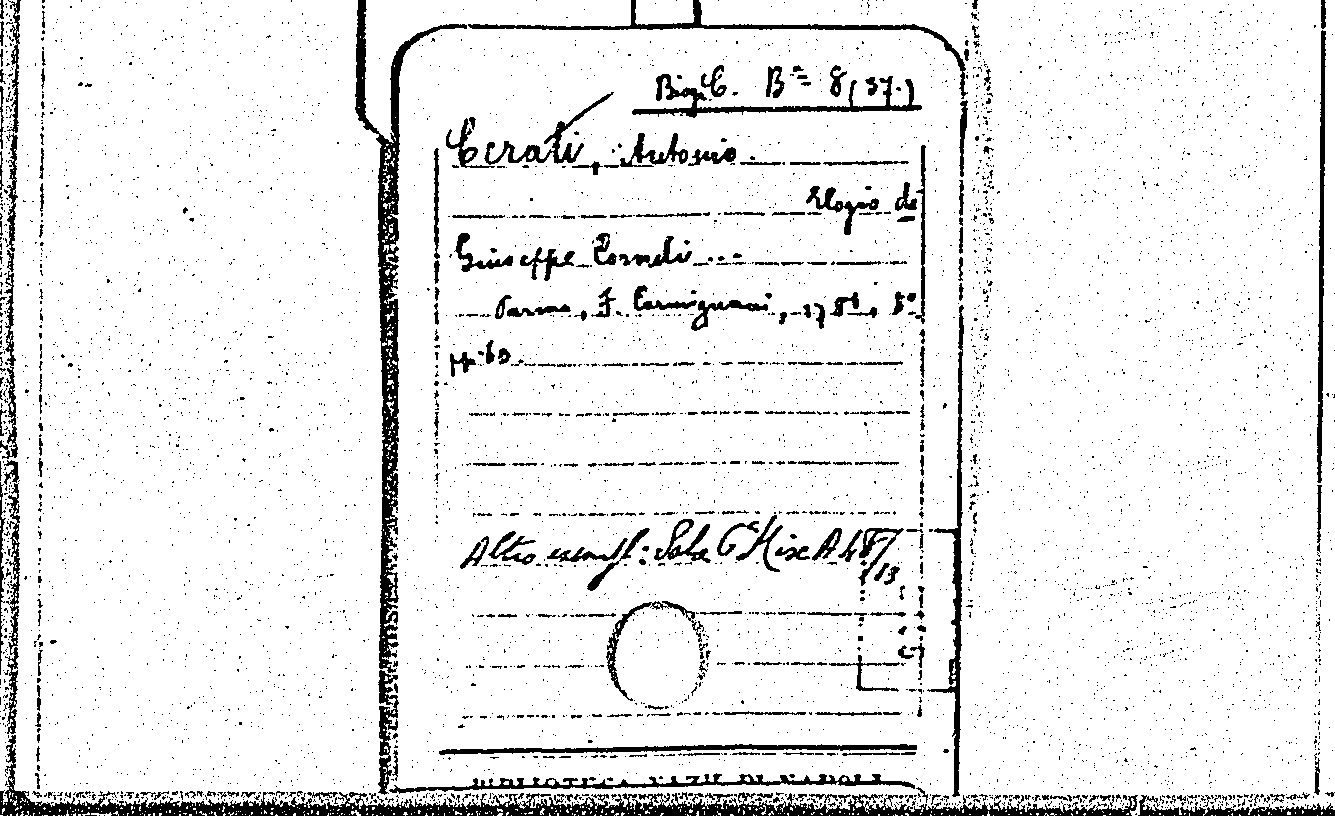 Biog. C. Bª 8 (37.)
Cerati, Antonio.
Elogio di
Giuseppe Corneli ...
Parma, F. Carmignani, 1781, 8º
pp. 63.
Altro esempl: Sala 6ª Misc A 48/13
BIBLIOTECA NAZ. DI NAPOLI